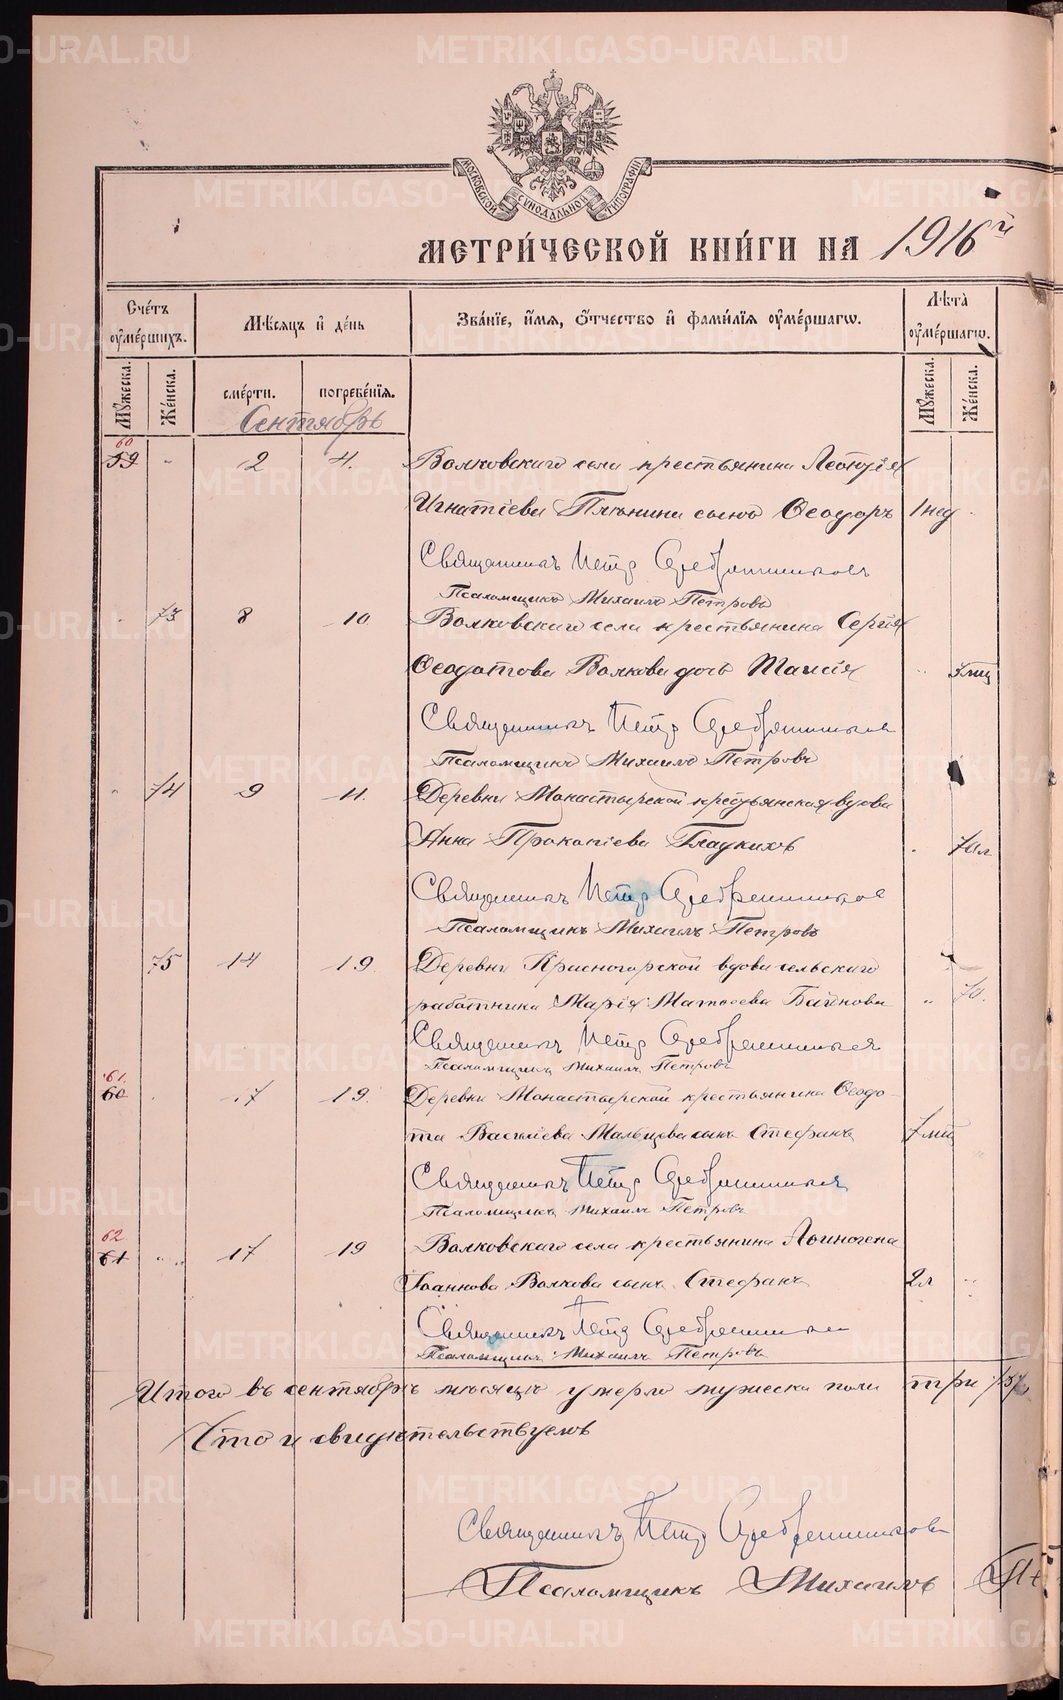 METRIKI.GASO-URAL.RU
МОСКОВСКОЙ СѴНОДАЛЬНОЙ ТИПОГРАФІИ
МЕТРИ́ЧЕСКОЙ КНИ́ГИ НА 1916й
Сче́тъ оумéршихъ.
Мѣ́сяцъ и҆ де́нь
Зва́нїе, и҆́мѧ, о҆́тчество и҆ фами́лїѧ оумéршагѡ.
Лѣта̀ оумéршагѡ.
Мꙋ́жеска.
Же́нска.
сме́рти.
погребе́нїѧ.
Мꙋ́жеска.
Же́нска.
Сентябрь
60
59 " 2 4. Волковскаго села крестьянина Леонтія
Игнатіева Пьянина сынъ Ѳеодоръ 1 нед
Священникъ Петр Серебренников
Псаломщикъ Михаилъ Петровъ
73 8 10 Волковскаго села крестьянина Сергія
Ѳеодотова Волкова дочь Таисія 3 мц
Священникъ Петр Серебренников
Псаломщикъ Михаилъ Петровъ
74 9 11. Деревни Монастырской крестьянская вдова
Анна Прокопіева Гладкихъ 70 л
Священникъ Петр Серебренников
Псаломщикъ Михаилъ Петровъ
75 14 19 Деревни Красногорской вдова сельскаго
работника Марія Матѳеева Байнова " 70.
Священникъ Петр Серебренников
Псаломщикъ Михаилъ Петровъ
61.
60 17 19. Деревни Монастырской крестьянина Ѳеодо-
та Васильева Мальцева сынъ Стефанъ 7 мц
Священникъ Петр Серебренников
Псаломщикъ Михаилъ Петровъ
62
61 " 17 19 Волковскаго села крестьянина Логиногена
Іоаннова Волкова сынъ Стефанъ 2 л "
Священникъ Петр Серебренников
Псаломщикъ Михаилъ Петровъ
Итого въ сентябрѣ мѣсяцѣ умерло мужеска пола три /3/
Что и свидѣтельствуемъ
Священникъ Петр Серебренников
Псаломщикъ Михаилъ